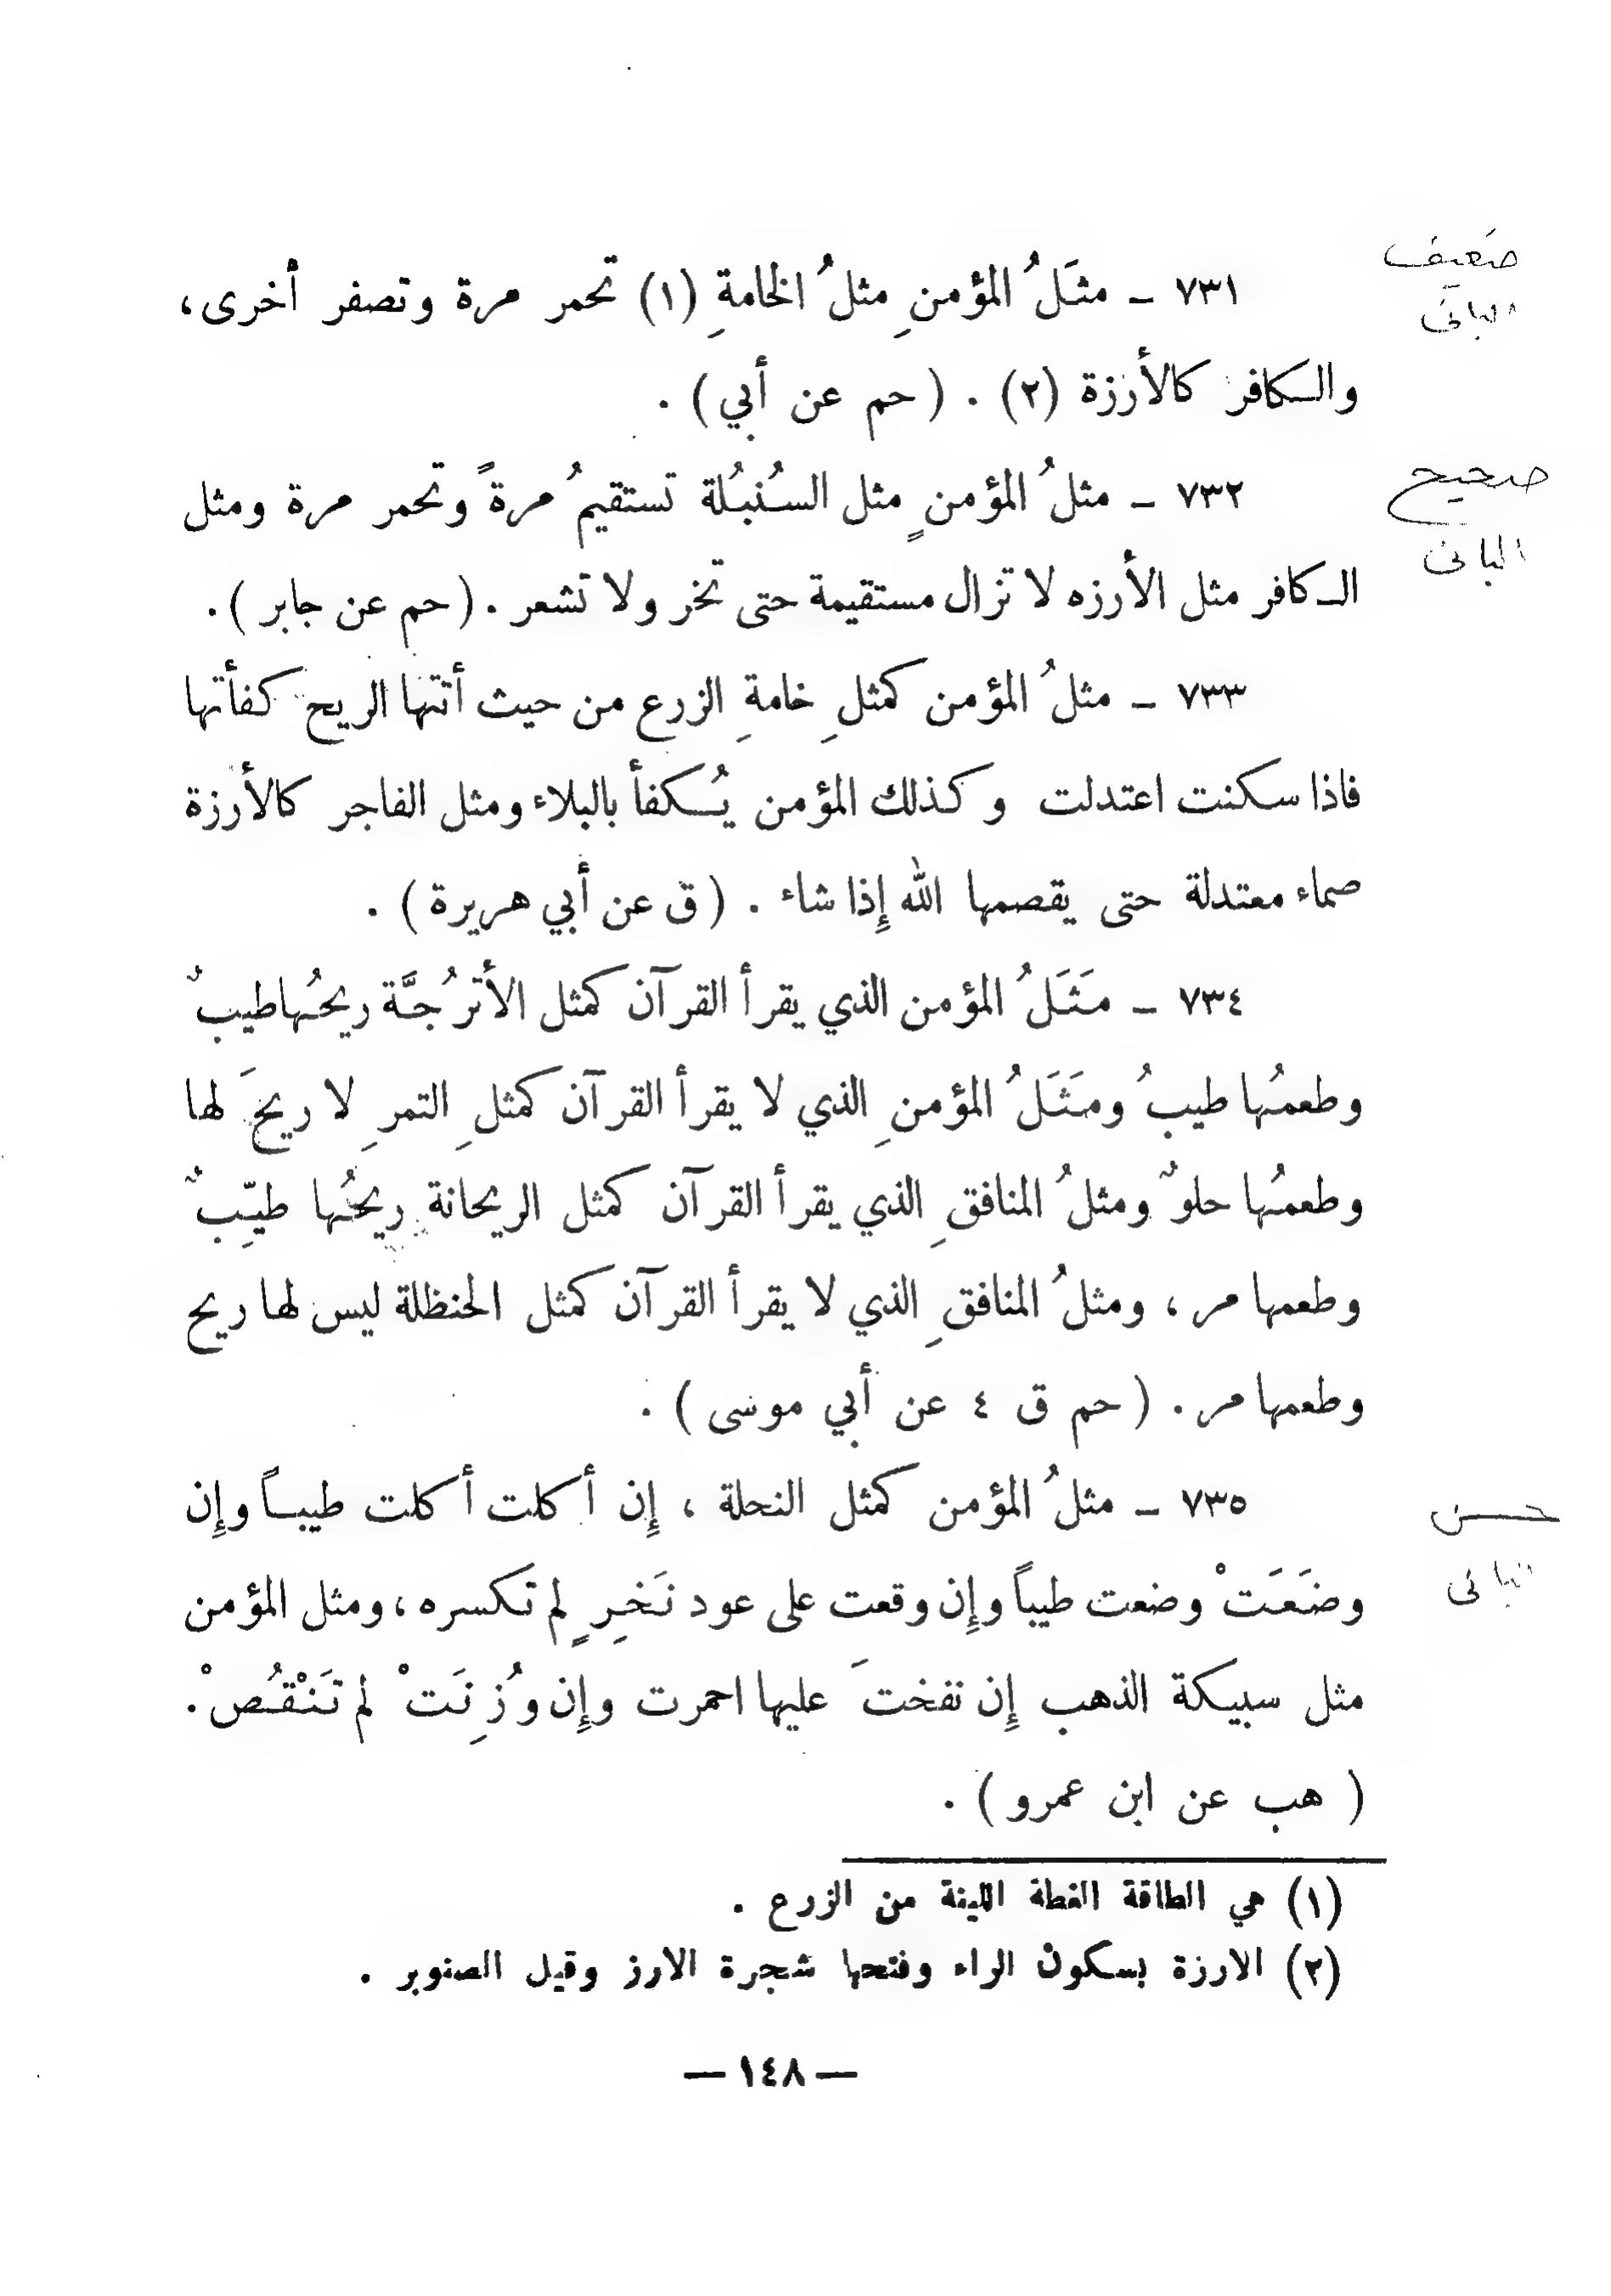 ضعيف
البانى
٧٣١ ـ مثَلُ المؤمنِ مثلُ الخامةِ (١) تحمر مرة وتصفر أخرى،
والكافر كالأرزة (٢) . ( حم عن أبي ) .
صحيح
البانى
٧٣٢ ـ مثلُ المؤمنٍ مثل السُنبُلة تستقيمُ مرةً وتحمر مرة ومثل
الكافر مثل الأرزه لا تزال مستقيمة حتى تخر ولا تشعر . ( حم عن جابر ) .
٧٣٣ ـ مثلُ المؤمن كمثلِ خامةِ الزرع من حيث أتتها الريح كفأتها
فاذا سكنت اعتدلت وكذلك المؤمن يُكفأ بالبلاء ومثل الفاجر كالأرزة
صماء معتدلة حتى يقصمها الله إِذا شاء . ( ق عن أبي هريرة ) .
٧٣٤ ـ مَثَلُ المؤمن الذي يقرأ القرآن كمثل الأترُجَّة ريحُها طيبٌ
وطعمُها طيبُ ومَثَلُ المؤمنِ الذي لا يقرأ القرآن كمثلِ التمرِ لا ريحَ لها
وطعمُها حلوٌ ومثلُ المنافقِ الذي يقرأ القرآن كمثل الريحانة ريحُها طيّبٌ
وطعمها مر ، ومثلُ المنافقِ الذي لا يقرأ القرآن كمثل الحنظلة ليس لها ريح
وطعمها مر . ( حم ق ٤ عن أبي موسى ) .
حسن
البانى
٧٣٥ ـ مثلُ المؤمن كمثل النحلة ، إِن أكلت أكلت طيباً وإِن
وضَعَتْ وضعت طيباً وإِن وقعت على عود نَخِرٍ لم تكسره ، ومثل المؤمن
مثل سبيكة الذهب إِن نفختَ عليها احمرت وإِن وُزِنَتْ لم تَنْقُصْ .
( هب عن ابن عمرو ) .
(١) هي الطاقة الغطة اللينة من الزرع .
(٢) الارزة بسكون الراء وفتحها شجرة الارز وقيل الصنوبر .
— ١٤٨ —